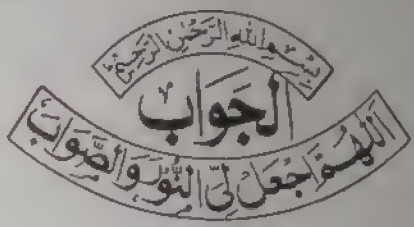 بِسْمِ اللهِ الرَّحْمٰنِ الرَّحِيْمِ
اَلْجَوَاب
اَللّٰهُمَّ اجْعَلْ لِیَ النُّوْرَ وَالصَّوَابَ